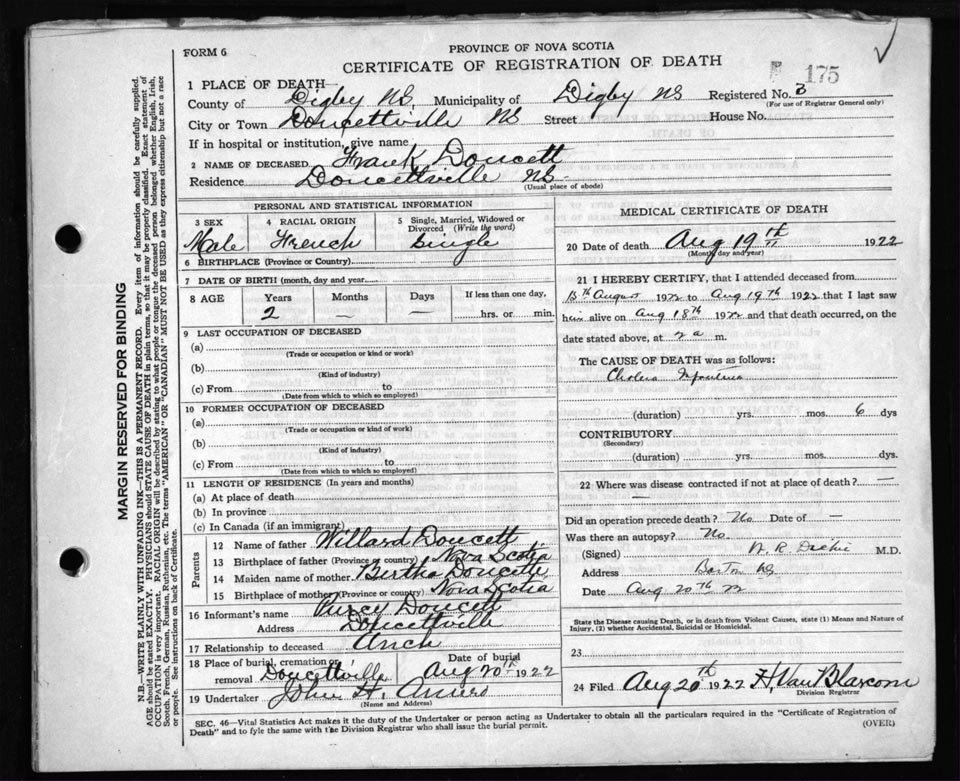 FORM 6
PROVINCE OF NOVA SCOTIA
CERTIFICATE OF REGISTRATION OF DEATH
175
1 PLACE OF DEATH
County of Digby NS, Municipality of Digby NS Registered No. 3
(For use of Registrar General only)
City or Town Doucettville NS Street House No.
If in hospital or institution, give name
2 NAME OF DECEASED Frank Doucett
Residence Doucettville NS
(Usual place of abode)
PERSONAL AND STATISTICAL INFORMATION
3 SEX Male
4 RACIAL ORIGIN French
5 Single, Married, Widowed or Divorced (Write the word) Single
6 BIRTHPLACE (Province or Country)
7 DATE OF BIRTH (month, day and year)
8 AGE Years Months Days If less than one day,
2 — — hrs. or min.
9 LAST OCCUPATION OF DECEASED
(a)
(Trade or occupation or kind or work)
(b)
(Kind of industry)
(c) From to
(Date from which to which so employed)
10 FORMER OCCUPATION OF DECEASED
(a)
(Trade or occupation or kind of work)
(b)
(Kind of industry)
(c) From to
(Date from which to which so employed)
11 LENGTH OF RESIDENCE (In years and months)
(a) At place of death
(b) In province
(c) In Canada (if an immigrant)
Parents
12 Name of father Willard Doucett
13 Birthplace of father (Province or country) Nova Scotia
14 Maiden name of mother Bertha Doucette
15 Birthplace of mother (Province or country) Nova Scotia
16 Informant's name Percy Doucett
Address Doucettville
17 Relationship to deceased Unch
18 Place of burial, cremation or removal Doucettville
Date of burial Aug 20th 1922
19 Undertaker John H.
(Name and Address)
MEDICAL CERTIFICATE OF DEATH
20 Date of death Aug 19th 1922
(Month, day and year)
21 I HEREBY CERTIFY, that I attended deceased from
15th August 1922 to Aug 19th 1922 that I last saw
him alive on Aug 18th 1922 and that death occurred, on the
date stated above, at 2 a m.
The CAUSE OF DEATH was as follows:
Cholera Infantum
(duration) yrs. mos. 6 dys
CONTRIBUTORY
(Secondary)
(duration) yrs. mos. dys.
22 Where was disease contracted if not at place of death? —
—
Did an operation precede death? No Date of —
Was there an autopsy? No.
(Signed) W. R. Dickie M.D.
Address Barton NS
Date Aug 20th 22
State the Disease causing Death, or in death from Violent Causes, state (1) Means and Nature of
Injury, (2) whether Accidental, Suicidal or Homicidal.
23
24 Filed Aug 20th 1922 H. Van Blarcom
Division Registrar
SEC. 46—Vital Statistics Act makes it the duty of the Undertaker or person acting as Undertaker to obtain all the particulars required in the "Certificate of Registration of
Death" and to fyle the same with the Division Registrar who shall issue the burial permit.
(OVER)
MARGIN RESERVED FOR BINDING
N.B.—WRITE PLAINLY WITH UNFADING INK—THIS IS A PERMANENT RECORD. Every item of information should be carefully supplied.
AGE should be stated EXACTLY. PHYSICIANS should STATE CAUSE OF DEATH in plain terms, so that it may be properly classified. Exact statement of
OCCUPATION is very important. RACIAL ORIGIN will be described by stating to what people or tongue the deceased person belonged whether English, Irish,
Scotch, French, German, Russian, Ruthenian, etc. The terms "AMERICAN" OR "CANADIAN" MUST NOT BE USED as they express citizenship but not a race
or people. See instructions on back of Certificate.